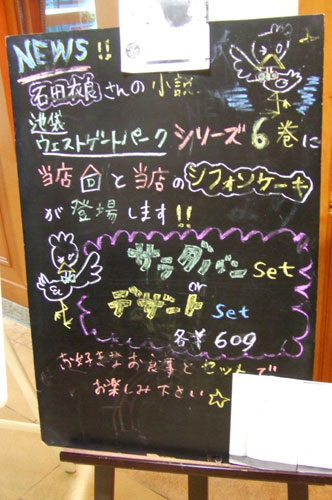 NEWS!!
石田衣良さんの小説
池袋
ウェストゲートパークシリーズ6巻に
当店と当店のシフォンケーキ
が登場します!!
サラダバーset
or
デザートset
各¥609
お好きなお食事とセットで
お楽しみ下さい☆